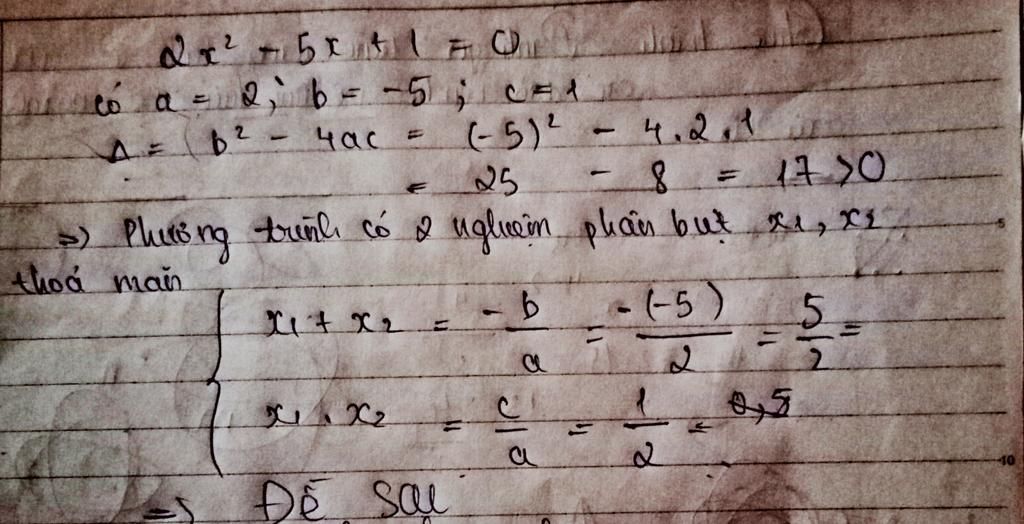 2x² - 5x + 1 = 0
có a = 2; b = -5; c = 1
Δ = b² - 4ac = (-5)² - 4.2.1
= 25 - 8 = 17 > 0
=> Phương trình có 2 nghiệm phân biệt x₁, x₂
thoả mãn
x₁ + x₂ = -b/a = -(-5)/2 = 5/2 =
x₁ . x₂ = c/a = 1/2 = 0,5
=> Đề sai
5
10